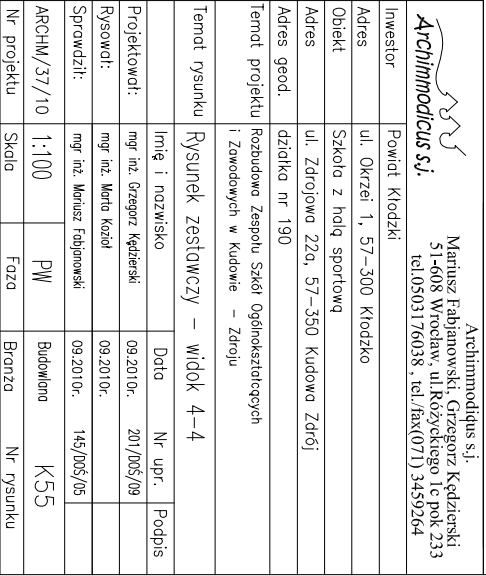 Archimmodicus s.j.
Archimmodiqus s.j.
Mariusz Fabjanowski, Grzegorz Kędzierski
51-608 Wrocław, ul.Różyckiego 1c pok 233
tel.0503176038 , tel./fax(071) 3459264
Inwestor Powiat Kłodzki
Adres ul. Okrzei 1, 57-300 Kłodzko
Obiekt Szkoła z halą sportową
Adres ul. Zdrojowa 22a, 57-350 Kudowa Zdrój
Adres geod. działka nr 190
Temat projektu Rozbudowa Zespołu Szkół Ogólnokształcących
i Zawodowych w Kudowie - Zdroju
Temat rysunku Rysunek zestawczy - widok 4-4
Imię i nazwisko Data Nr upr. Podpis
Projektował: mgr inż. Grzegorz Kędzierski 09.2010r. 201/DOŚ/09
Rysował: mgr inż. Marta Kozioł 09.2010r.
Sprawdził: mgr inż. Mariusz Fabjanowski 09.2010r. 145/DOŚ/05
ARCHM/37/10 1:100 PW Budowlana K55
Nr projektu Skala Faza Branża Nr rysunku